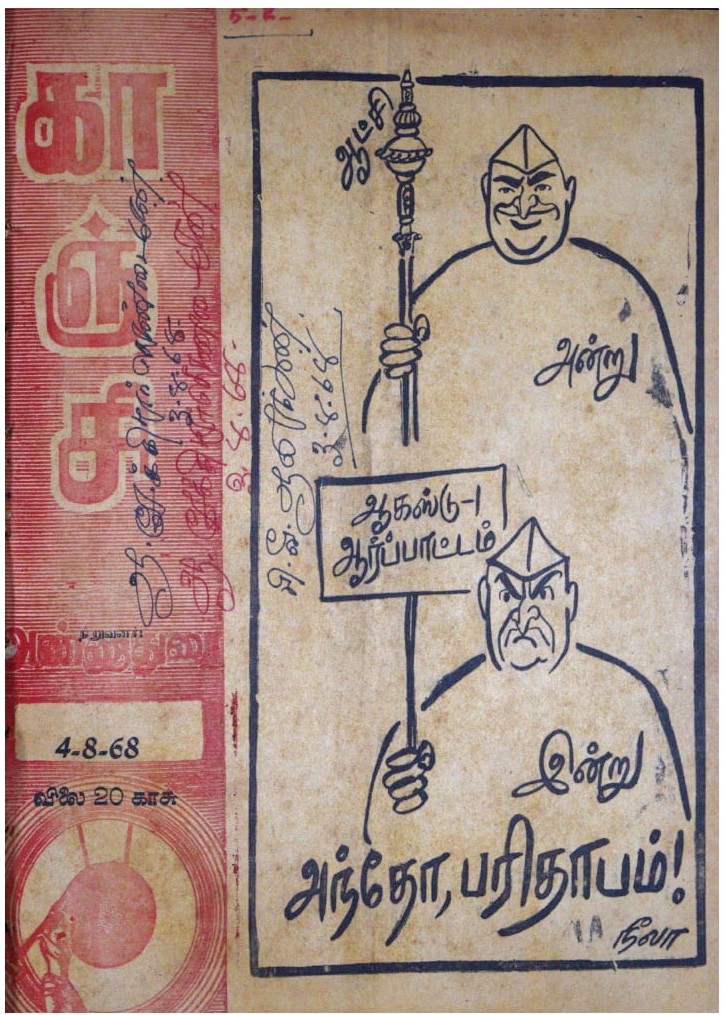 காஞ்சி
நிறுவனர்
அண்ணாதுரை
4-8-68
விலை 20 காசு
3.8.68
3.8.68
ஆட்சி
அன்று
ஆகஸ்டு-1
ஆர்ப்பாட்டம்
இன்று
அந்தோ, பரிதாபம்!
நீலா